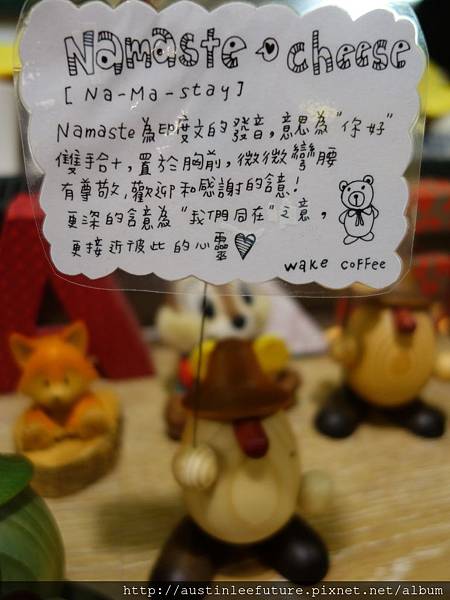 Namaste cheese
[Na-Ma-stay]
Namaste為印度文的發音,意思為"你好"
雙手合十,置於胸前,微微彎腰
有尊敬,歡迎和感謝的含意!
更深的含意為"我們同在"之意,
更接近彼此的心靈
wake coffee
http://austinleefuture.pixnet.net/album